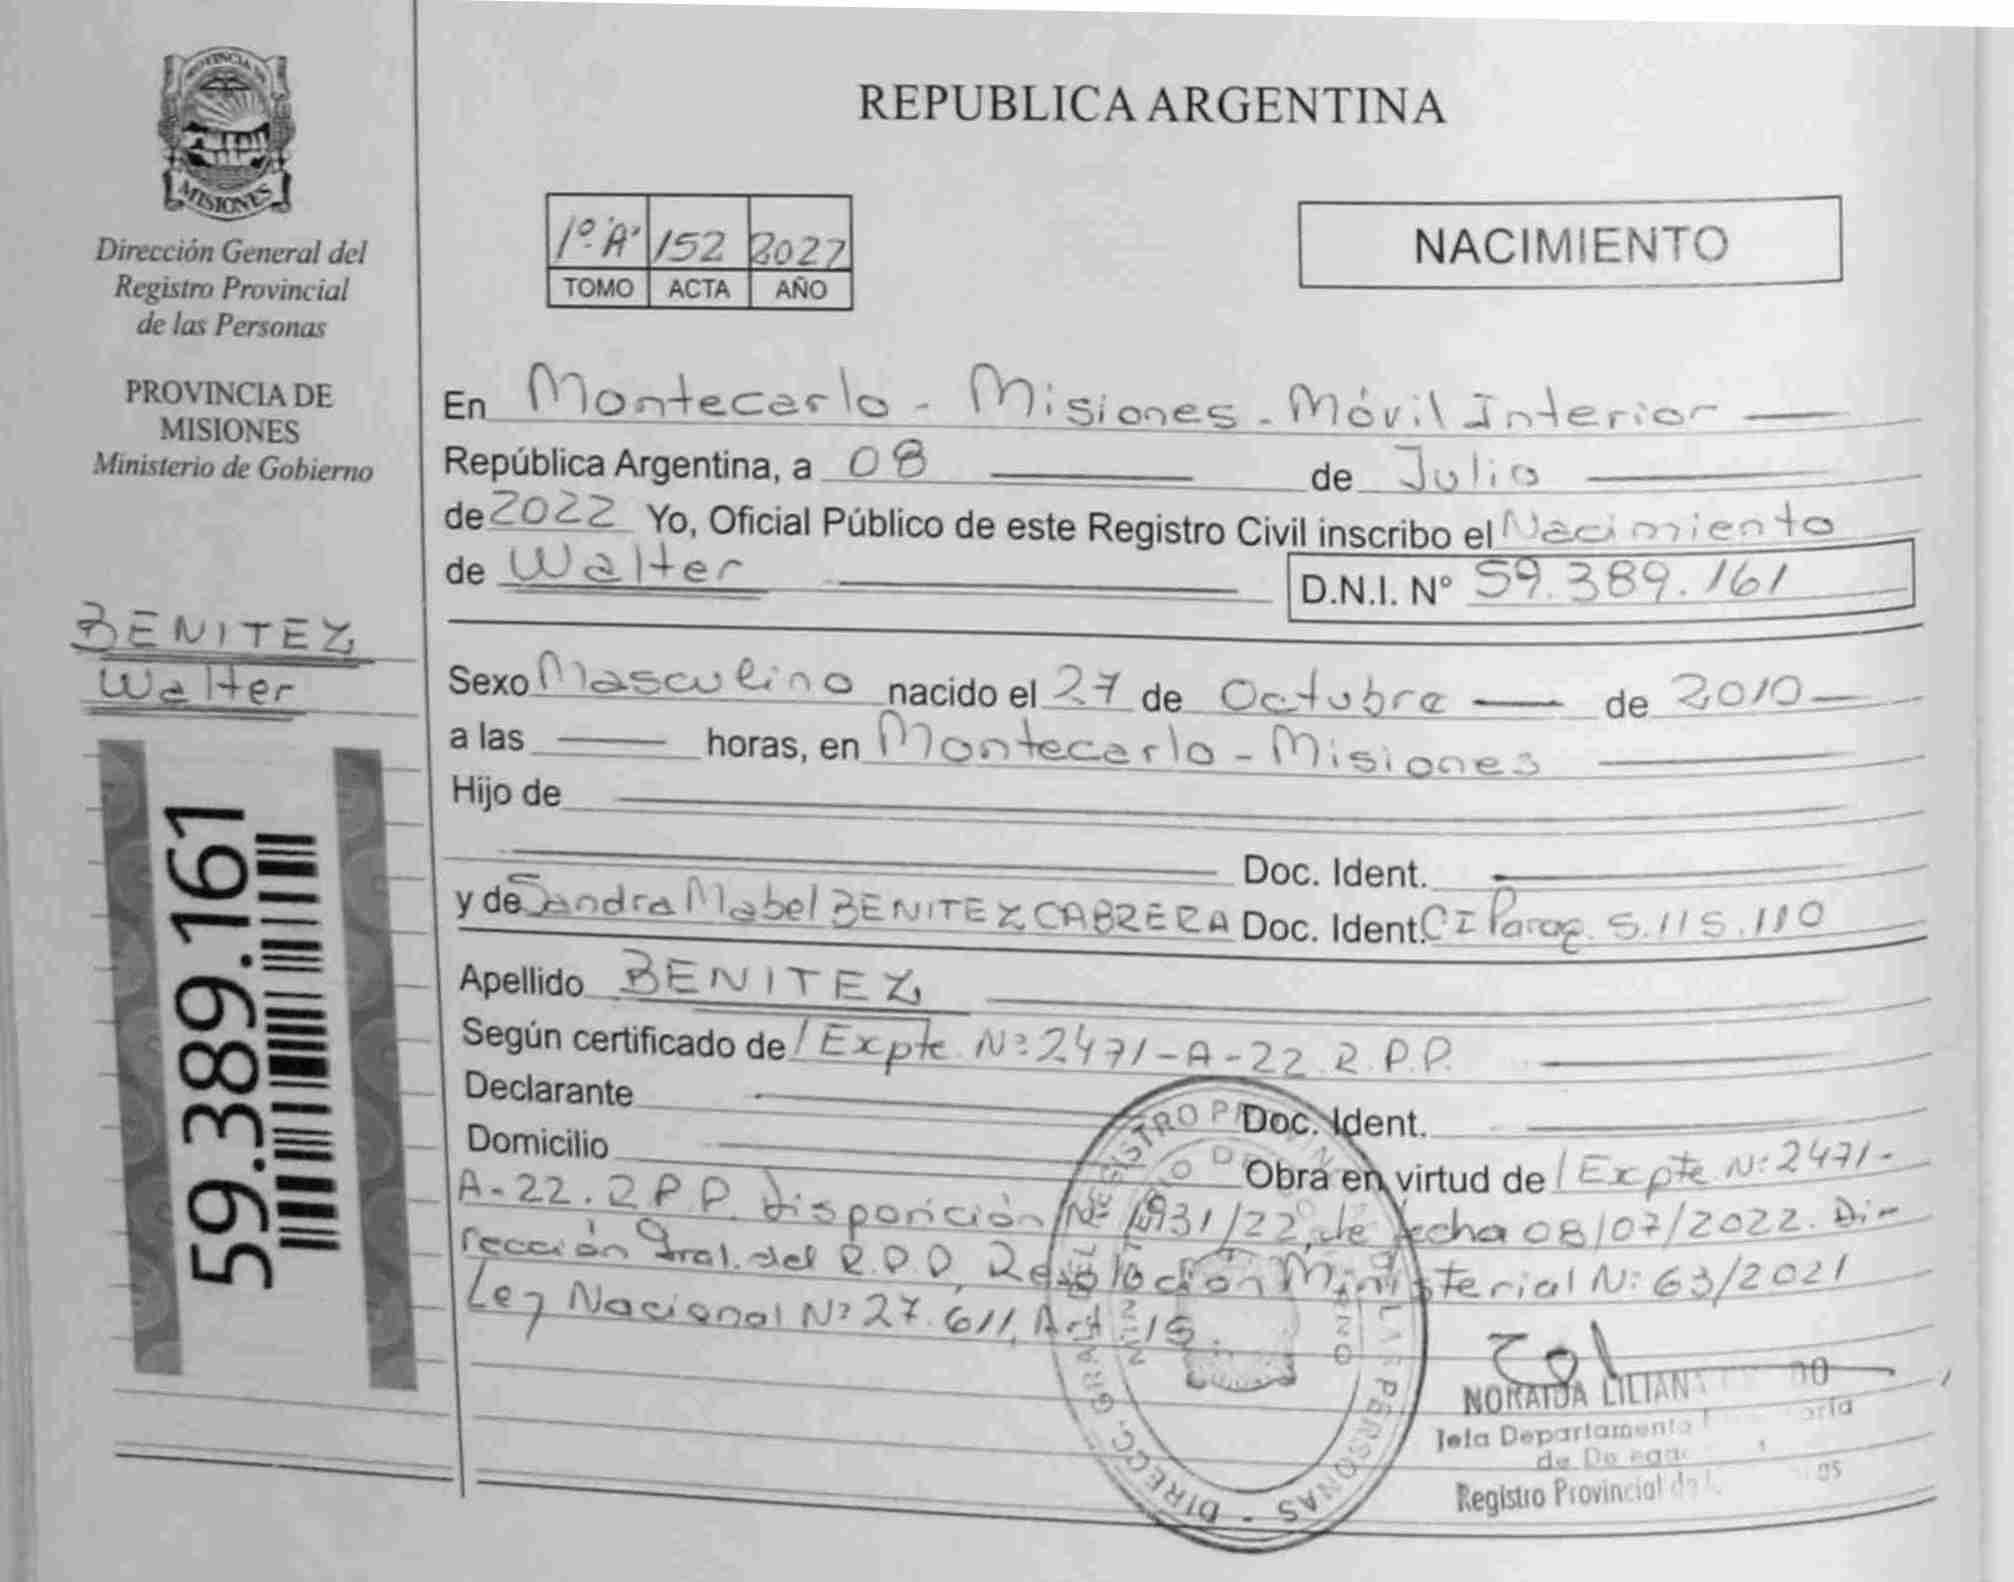 PROVINCIA DE
MISIONES
Dirección General del
Registro Provincial
de las Personas
PROVINCIA DE
MISIONES
Ministerio de Gobierno
BENITEZ
Walter
59.389.161
REPUBLICA ARGENTINA
1º "A" 152 2022
TOMO ACTA AÑO
NACIMIENTO
En Montecarlo - Misiones - Móvil Interior
República Argentina, a 08 de Julio
de 2022 Yo, Oficial Público de este Registro Civil inscribo el Nacimiento
de Walter D.N.I. Nº 59.389.161
Sexo Masculino nacido el 27 de Octubre de 2010
a las horas, en Montecarlo - Misiones
Hijo de
Doc. Ident.
y de Sandra Mabel BENITEZ CABRERA Doc. Ident. CI Parag. 5.115.110
Apellido BENITEZ
Según certificado de / Expte Nº 2471-A-22 R.P.P.
Declarante Doc. Ident.
Domicilio Obra en virtud de / Expte Nº 2471-
A-22. R.P.P. Disposición Nº 1931/22, de fecha 08/07/2022. Di-
rección Gral. del R.P.P, Resolución Ministerial Nº 63/2021
Ley Nacional Nº 27.611, Art. 15.
NORAIDA LILIANA
Jefa Departamento
de
Registro Provincial de
DIRECC. GRAL. DEL REGISTRO PROVINCIAL DE LAS PERSONAS